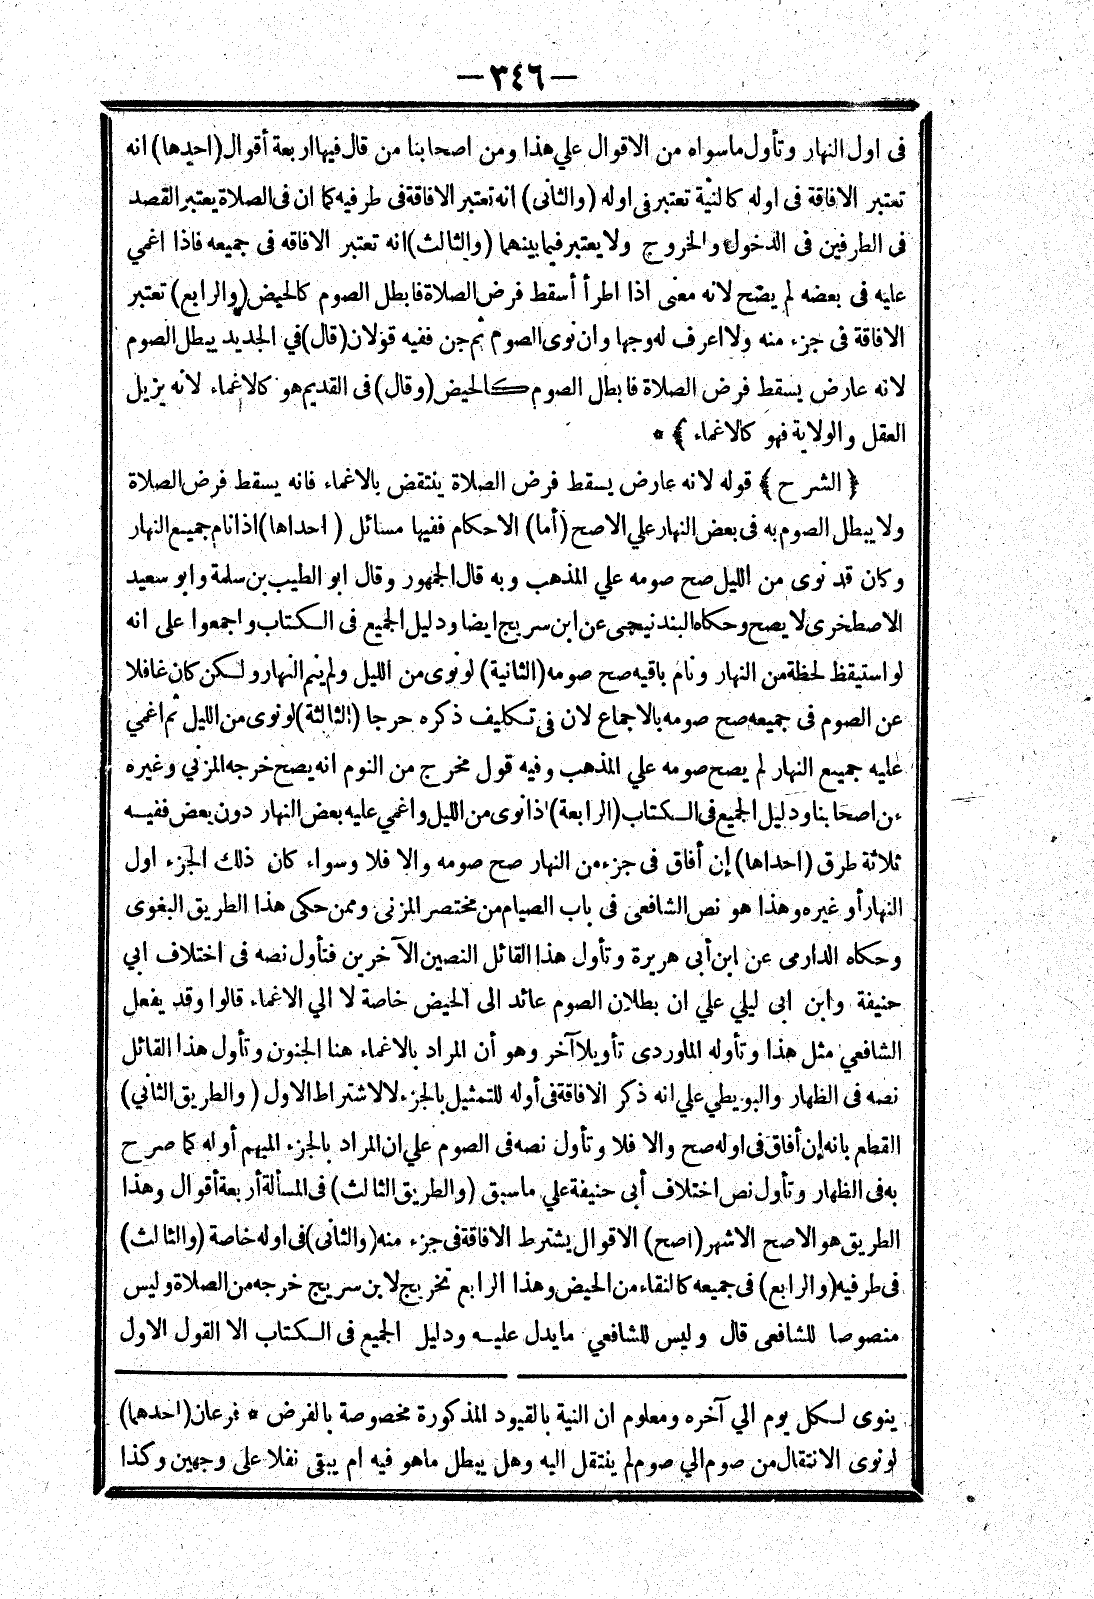 — ٣٤٦ —
فى اول النهار وتأول ماسواه من الاقوال علي هذا ومن اصحابنا من قال فيها اربعة أقوال (احيدها) انه
تعتبر الافاقة فى اوله كالنية تعتبر فى اوله (والثانى) انه تعتبر الافاقة فى طرفيه كما ان فى الصلاة يعتبر القصد
فى الطرفين فى الدخول والخروج ولا يعتبر فيما بينهما (والثالث) انه تعتبر الافاقه فى جميعه فاذا اغمي
عليه فى بعضه لم يصح لانه معنى اذا اطرأ أسقط فرض الصلاة فابطل الصوم كالحيض (والرابع) تعتبر
الافاقة فى جزء منه ولا اعرف له وجها وان نوى الصوم ثم جن ففيه قولان (قال) في الجديد يبطل الصوم
لانه عارض يسقط فرض الصلاة فابطل الصوم كالحيض (وقال) فى القديم هو كالاغماء لانه يزيل
العقل والولاية فهو كالاغماء ﴾ *
﴿ الشرح ﴾ قوله لانه عارض يسقط فرض الصلاة ينتقض بالاغماء فانه يسقط فرض الصلاة
ولا يبطل الصوم به فى بعض النهار علي الاصح (أما) الاحكام ففيها مسائل (احداها) اذا نام جميع النهار
وكان قد نوى من الليل صح صومه علي المذهب وبه قال الجمهور وقال ابو الطيب بن سلمة وابو سعيد
الاصطخرى لا يصح وحكاه البندنيجى عن ابن سريج ايضا ودليل الجميع فى الكتاب واجمعوا على انه
لو استيقظ لحظة من النهار ونام باقيه صح صومه (الثانية) لو نوى من الليل ولم ينم النهار ولكن كان غافلا
عن الصوم فى جميعه صح صومه بالاجماع لان فى تكليف ذكره حرجا (الثالثة) لو نوى من الليل ثم اغمي
عليه جميع النهار لم يصح صومه علي المذهب وفيه قول مخرج من النوم انه يصح خرجه المزني وغيره
من اصحابنا ودليل الجميع فى الكتاب (الرابعة) اذا نوى من الليل واغمي عليه بعض النهار دون بعض ففيه
ثلاثة طرق (احداها) إن أفاق فى جزء من النهار صح صومه والا فلا وسواء كان ذلك الجزء اول
النهار أو غيره وهذا هو نص الشافعى فى باب الصيام من مختصر المزنى وممن حكى هذا الطريق البغوى
وحكاه الدارمى عن ابن أبى هريرة وتأول هذا القائل النصين الآخرين فتأول نصه فى اختلاف ابي
حنيفة وابن ابى ليلي علي ان بطلان الصوم عائد الى الحيض خاصة لا الي الاغماء قالوا وقد يفعل
الشافعي مثل هذا وتأوله الماوردى تأويلا آخر وهو أن المراد بالاغماء هنا الجنون وتأول هذا القائل
نصه فى الظهار والبويطي علي انه ذكر الافاقة فى أوله للتمثيل بالجزء لا لاشتراط الاول (والطريق الثاني)
القطع بانه إن أفاق فى اوله صح والا فلا وتأول نصه فى الصوم علي ان المراد بالجزء المبهم أوله كما صرح
به فى الظهار وتأول نص اختلاف أبى حنيفة علي ماسبق (والطريق الثالث) فى المسألة أربعة أقوال وهذا
الطريق هو الاصح الاشهر (اصح) الاقوال يشترط الافاقة فى جزء منه (والثانى) فى اوله خاصة (والثالث)
فى طرفيه (والرابع) فى جميعه كالنقاء من الحيض وهذا الرابع تخريج لابن سريج خرجه من الصلاة وليس
منصوصا للشافعى قال وليس للشافعي مايدل عليه ودليل الجميع فى الكتاب الا القول الاول
ينوى لكل يوم الي آخره ومعلوم ان النية بالقيود المذكورة مخصوصة بالفرض * فرعان (احدهما)
لو نوى الانتقال من صوم الي صوم لم ينتقل اليه وهل يبطل ماهو فيه ام يبقى نفلا على وجهين وكذا